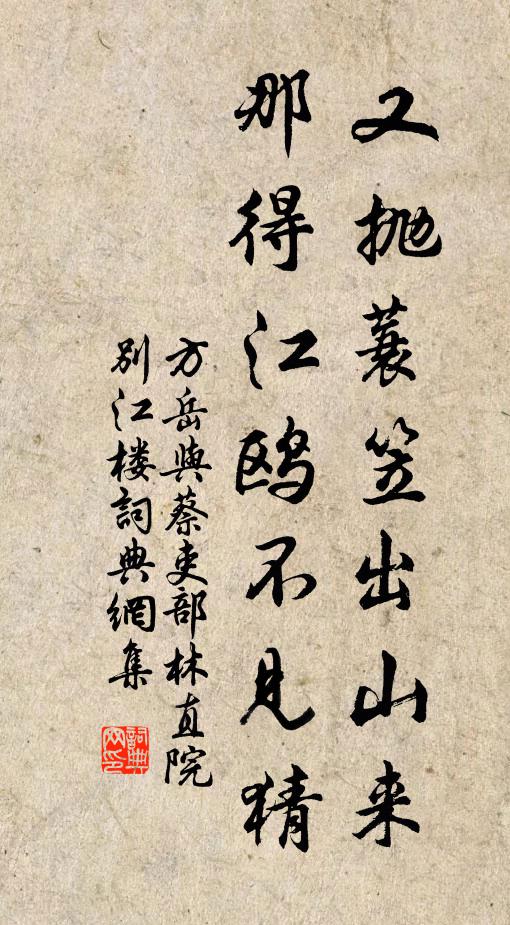 又抛蓑笠出山来
那得江鸥不见猜
方岳與蔡吏部林直院
别江楼詞典網集
詞典
网印